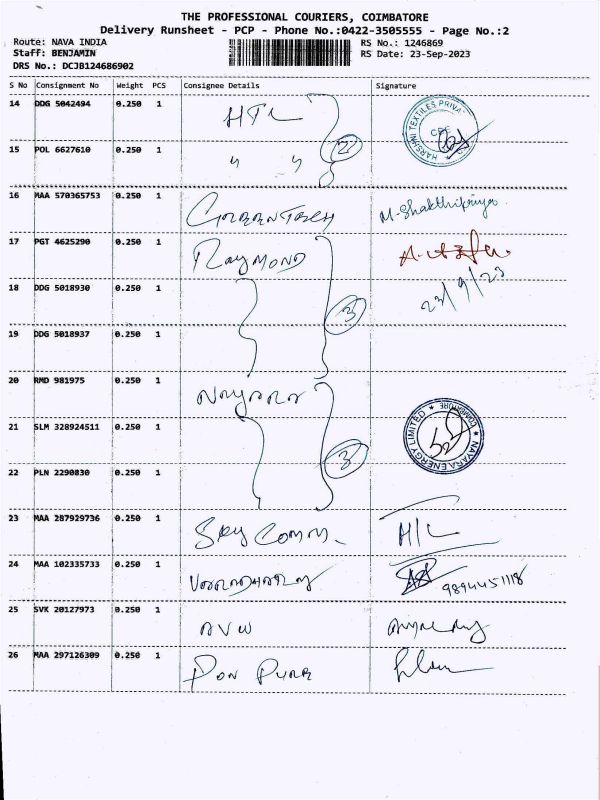 THE PROFESSIONAL COURIERS, COIMBATORE
Delivery Runsheet - PCP - Phone No.:0422-3505555 - Page No.:2
Route: NAVA INDIA
RS No.: 1246869
Staff: BENJAMIN
RS Date: 23-Sep-2023
DRS No.: DCJB124686902
S No Consignment No Weight PCS Consignee Details Signature
14 DDG 5042494 0.250 1 HTL HARSHNI TEXTILES PRIVA
15 POL 6627610 0.250 1 " " 2
16 MAA 570365753 0.250 1 GREENTECH M. Shakthipriya
17 PGT 4625290 0.250 1 RAYMOND
23/9/23
18 DDG 5018930 0.250 1 3
19 DDG 5018937 0.250 1
20 RMD 981975 0.250 1 NAYARA
21 SLM 328924511 0.250 1 NAYARA ENERGY LIMITED ★ COIMBATORE ★
22 PLN 2290830 0.250 1 3
23 MAA 287929736 0.250 1 SKY COMM. H/L
24 MAA 102335733 0.250 1 9894451118
25 SVK 20127973 0.250 1 AVW
26 MAA 297126309 0.250 1 PON PURE